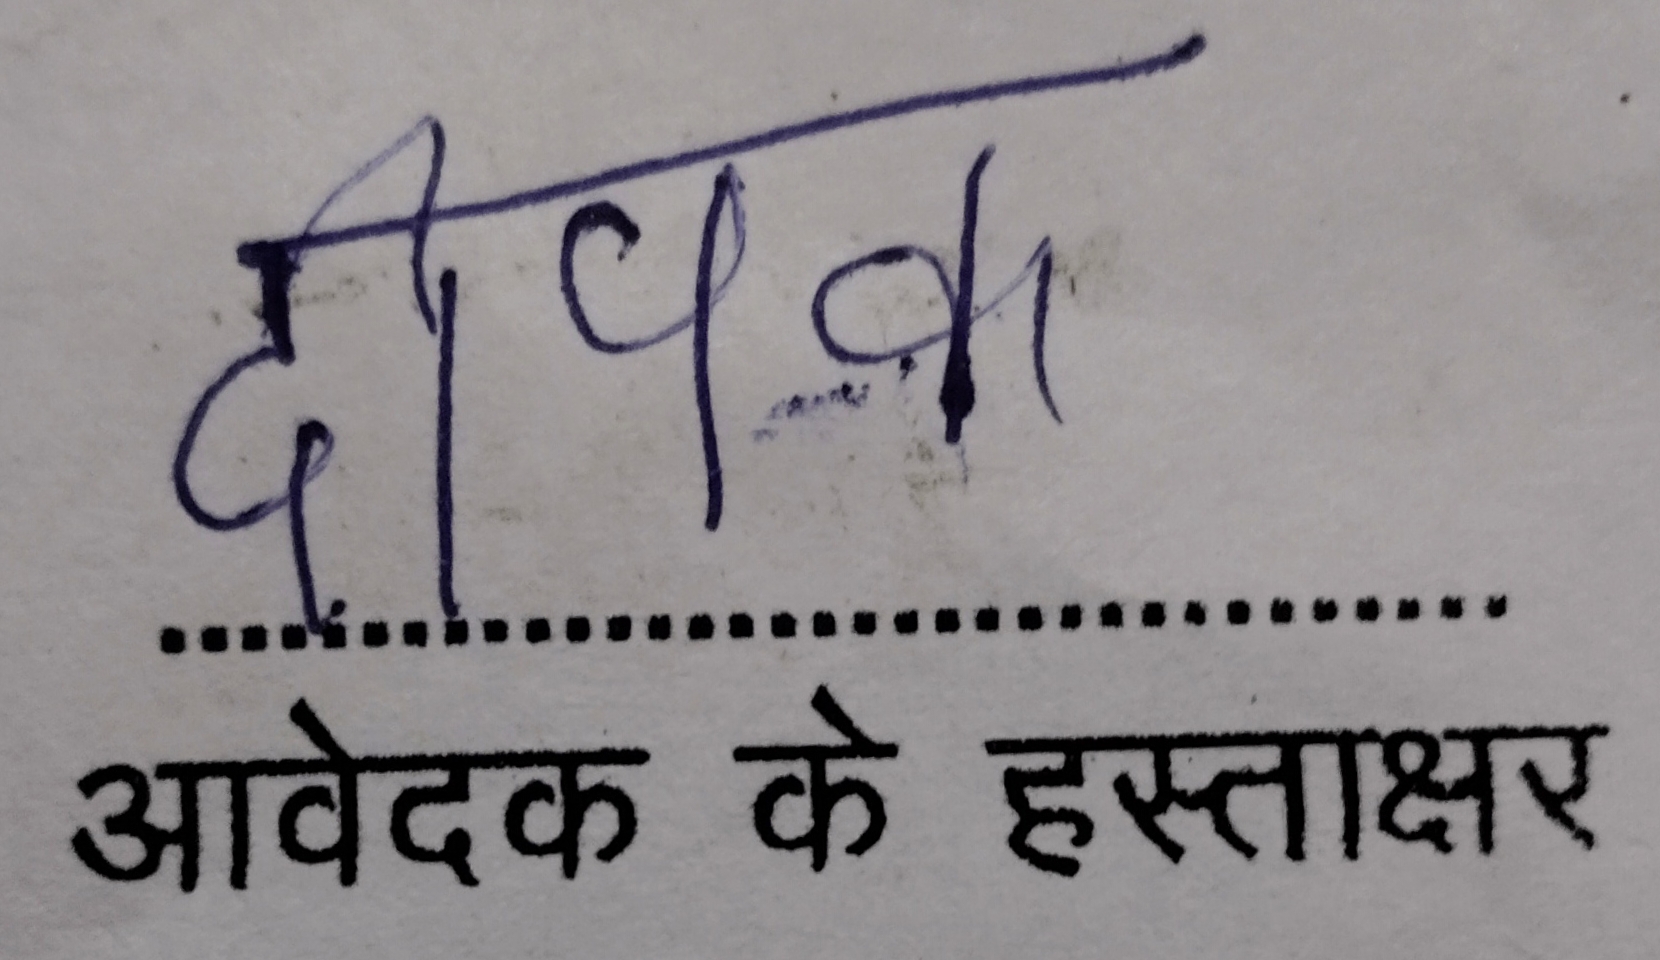 दीपक
आवेदक के हस्ताक्षर